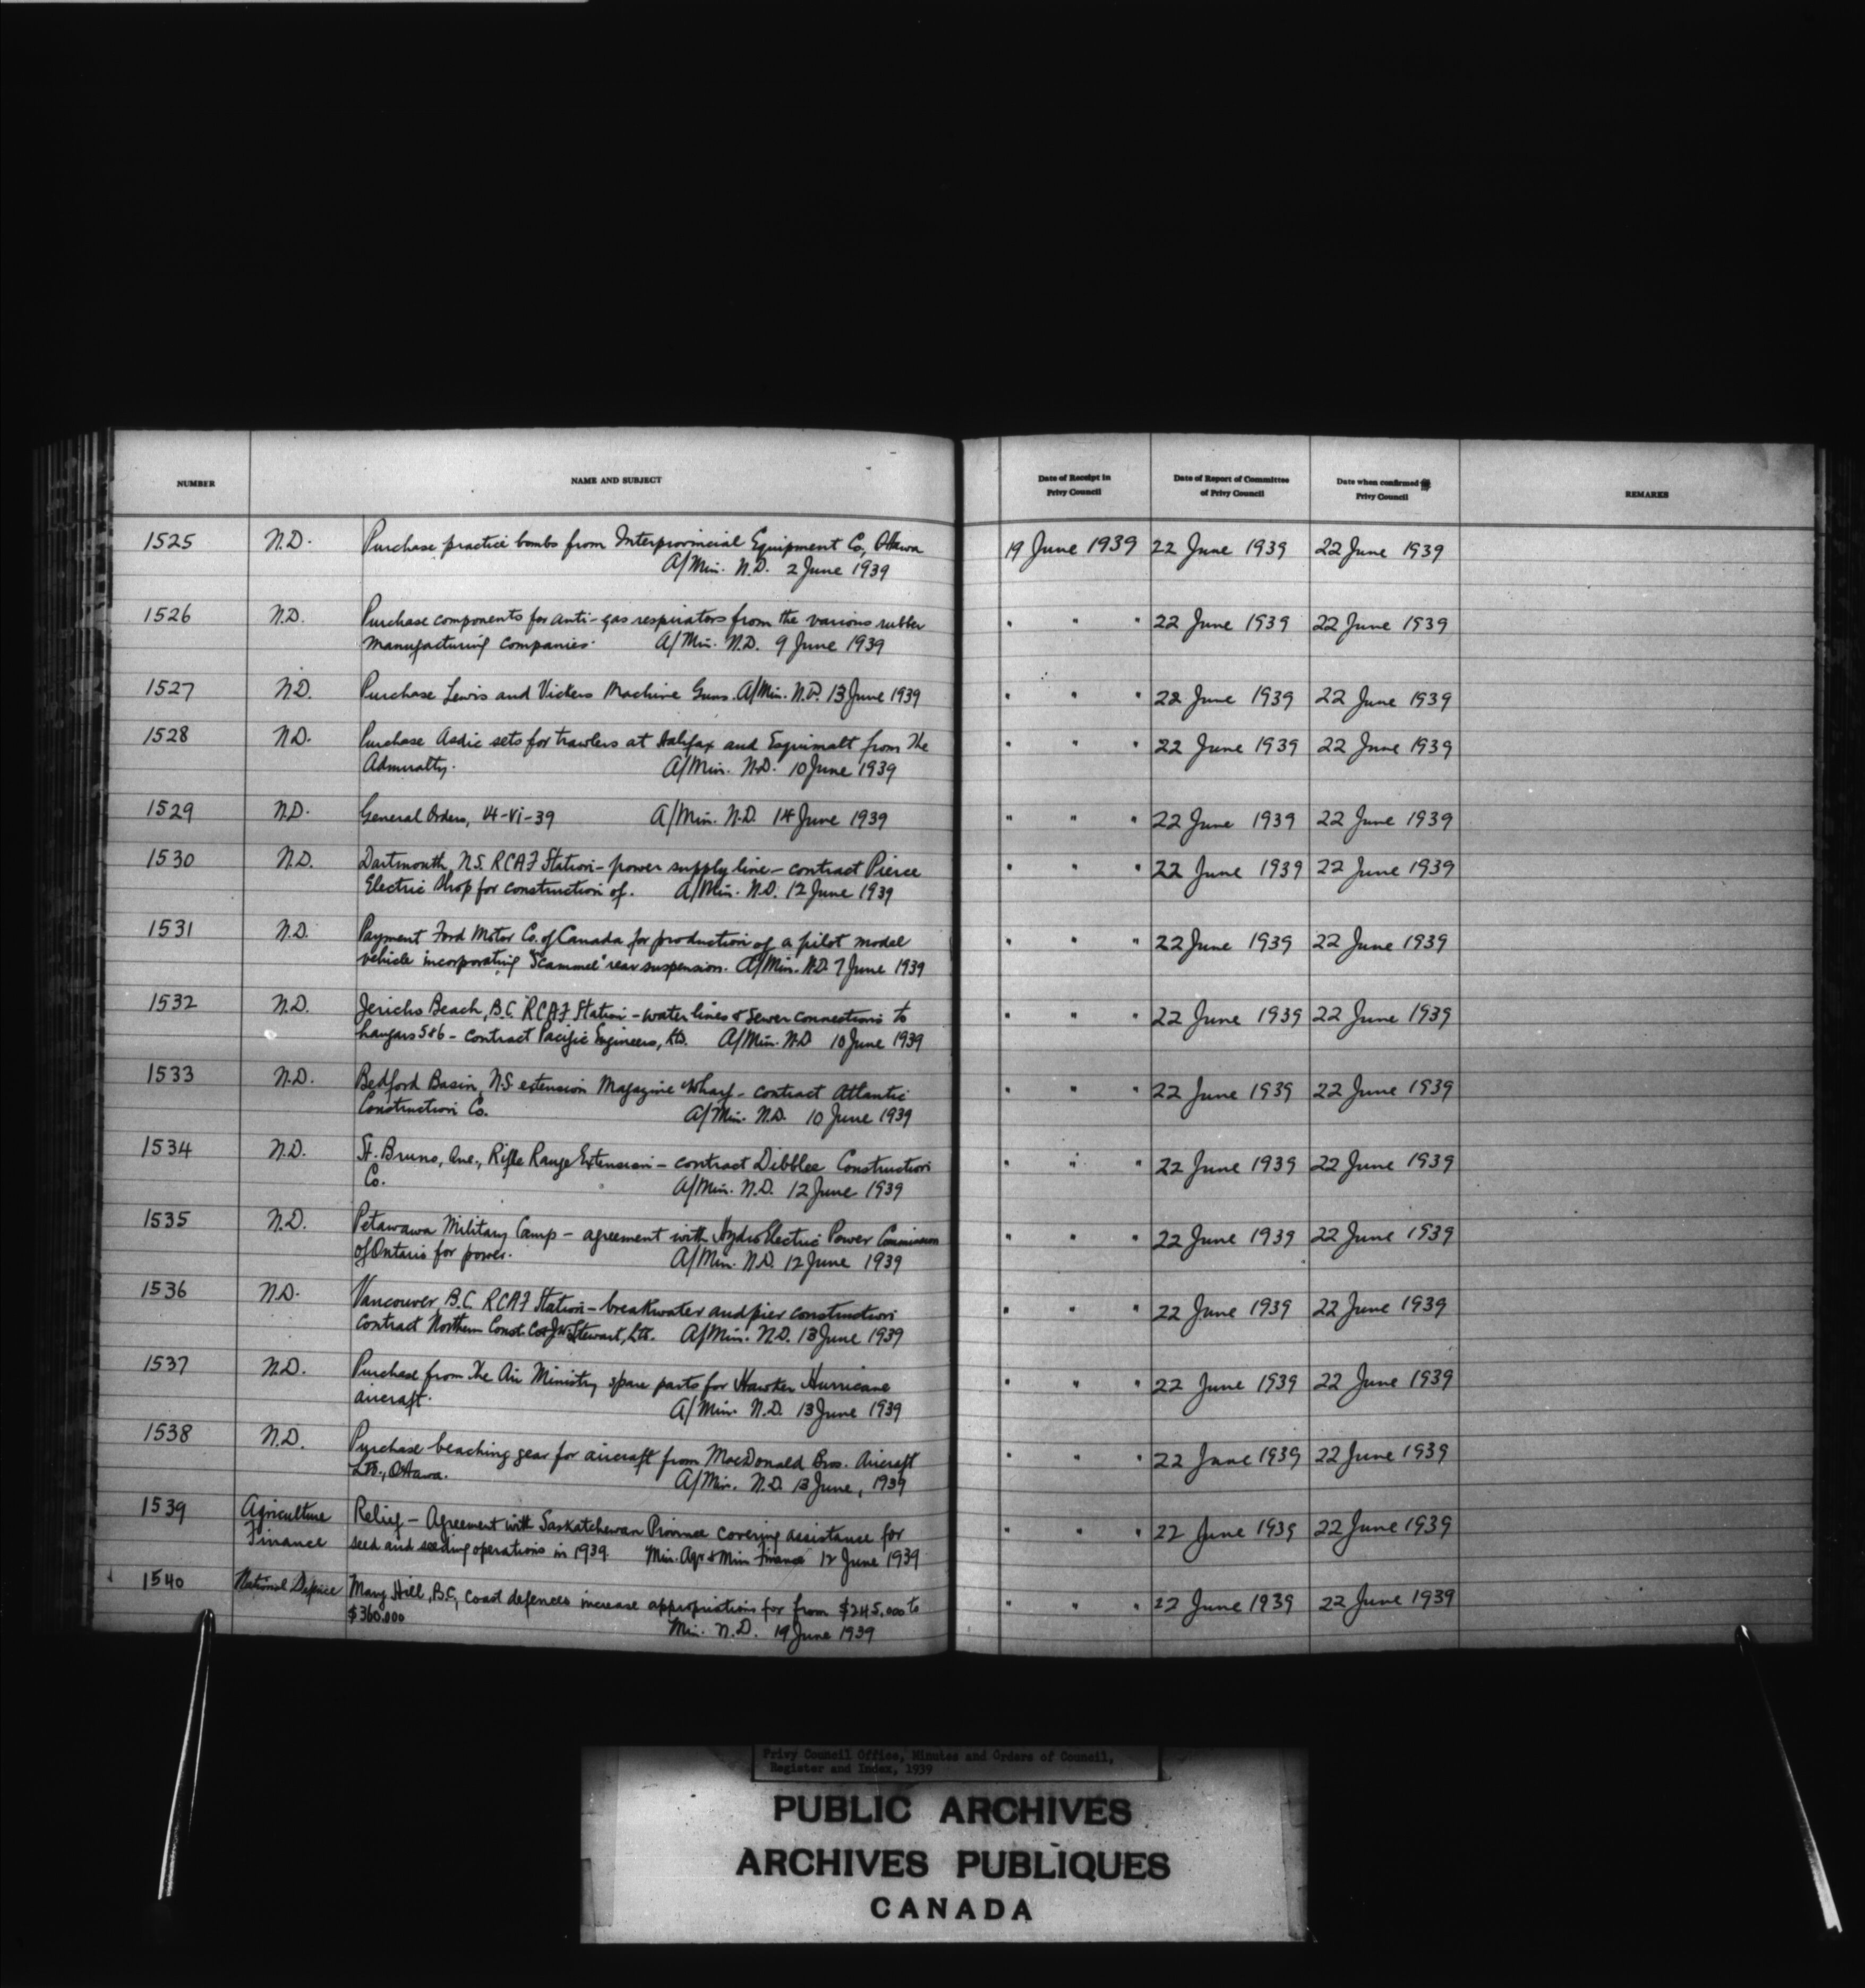 NUMBER NAME AND SUBJECT Date of Receipt in Privy Council Date of Report of Committee of Privy Council Date when confirmed Privy Council REMARKS
1525 N.D. Purchase practice bombs from Interprovincial Equipment Co., Ottawa 19 June 1939 22 June 1939 22 June 1939
A/Min. N.D. 2 June 1939
1526 N.D. Purchase components for anti-gas respirators from the various rubber " " " 22 June 1939 22 June 1939
manufacturing companies. A/Min. N.D. 9 June 1939
1527 N.D. Purchase Lewis and Vickers Machine Guns. A/Min. N.D. 13 June 1939 " " " 22 June 1939 22 June 1939
1528 N.D. Purchase Asdic sets for trawlers at Halifax and Esquimalt from The " " " 22 June 1939 22 June 1939
Admiralty. A/Min. N.D. 10 June 1939
1529 N.D. General Orders, 14-vi-39 A/Min. N.D. 14 June 1939 " " " 22 June 1939 22 June 1939
1530 N.D. Dartmouth, N.S. RCAF Station - power supply line - contract Pierce " " " 22 June 1939 22 June 1939
Electric Shop for construction of. A/Min. N.D. 12 June 1939
1531 N.D. Payment Ford Motor Co. of Canada for production of a pilot model " " " 22 June 1939 22 June 1939
vehicle incorporating "Scammel" rear suspension. A/Min. N.D. 7 June 1939
1532 N.D. Jericho Beach, B.C. RCAF Station - water lines & sewer connections to " " " 22 June 1939 22 June 1939
hangars 5&6 - contract Pacific Engineers, Ltd. A/Min. N.D. 10 June 1939
1533 N.D. Bedford Basin, N.S. extension Magazine Wharf - contract Atlantic " " " 22 June 1939 22 June 1939
Construction Co. A/Min. N.D. 10 June 1939
1534 N.D. St. Bruno, Que., Rifle Range Extension - contract Dibblee Construction " " " 22 June 1939 22 June 1939
Co. A/Min. N.D. 12 June 1939
1535 N.D. Petawawa Military Camp - agreement with Hydro Electric Power Commission " " " 22 June 1939 22 June 1939
of Ontario for power. A/Min. N.D. 12 June 1939
1536 N.D. Vancouver, B.C. RCAF Station - breakwater and pier construction " " " 22 June 1939 22 June 1939
contract Northern Const. Co & J.W. Stewart, Ltd. A/Min. N.D. 13 June 1939
1537 N.D. Purchase from The Air Ministry spare parts for Hawker Hurricane " " " 22 June 1939 22 June 1939
aircraft. A/Min. N.D. 13 June 1939
1538 N.D. Purchase beaching gear for aircraft from MacDonald Bros. Aircraft " " " 22 June 1939 22 June 1939
Ltd., Ottawa. A/Min. N.D. 13 June, 1939
1539 Agriculture Relief - Agreement with Saskatchewan Province covering assistance for " " " 22 June 1939 22 June 1939
Finance seed and seeding operations in 1939. Min. Agr & Min Finance 12 June 1939
1540 National Defence Mary Hill, B.C., coast defences increase appropriations for from $245,000 to " " " 22 June 1939 22 June 1939
$360.000 Min. N.D. 19 June 1939
Privy Council Office, Minutes and Orders of Council,
Register and Index, 1939
PUBLIC ARCHIVES
ARCHIVES PUBLIQUES
CANADA